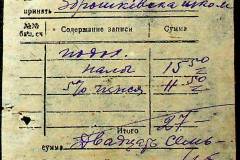 принять
№№ бал. сч. Содержание записи Сумма
подох.
налог 15 50
5% 11 50
Итого 27-
сумма Двадцать семь